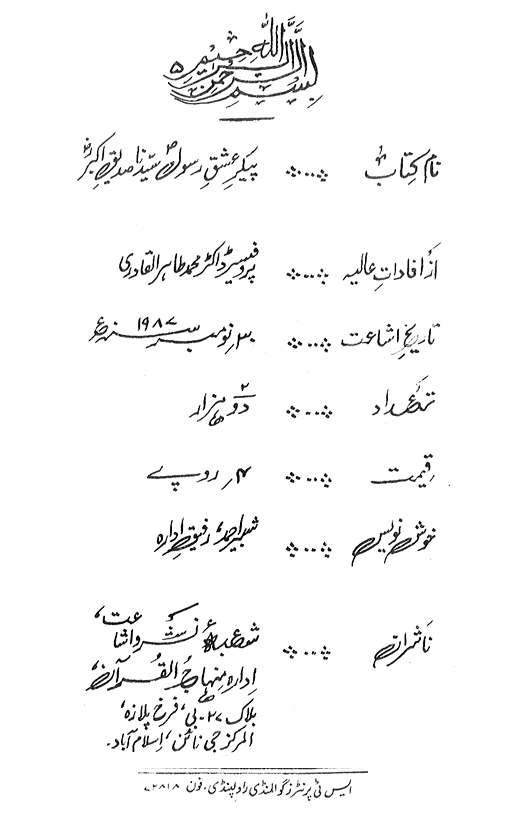 بسم اللہ الرحمن الرحیم ۵
نام کتاب پیکرِ عشقِ رسولؐ سیّدنا صدیقِ اکبرؓ
از افاداتِ عالیہ پروفیسر ڈاکٹر محمد طاہر القادری
تاریخِ اشاعت ۳۰ نومبر سنہ ۱۹۸۷ء
تعداد دو ہزار
قیمت ۴؍ روپے
خوش نویس شبیر احمد، رفیقِ ادارہ
ناشران شعبہ نشر و اشاعت،
ادارہ منہاج القرآن،
بلاک ۲۷۔ بی، فرخ پلازہ،
المرکز جی نائن، اسلام آباد۔
ایس ٹی پرنٹرز گوالمنڈی راولپنڈی۔ فون ۷۲۸۱۸